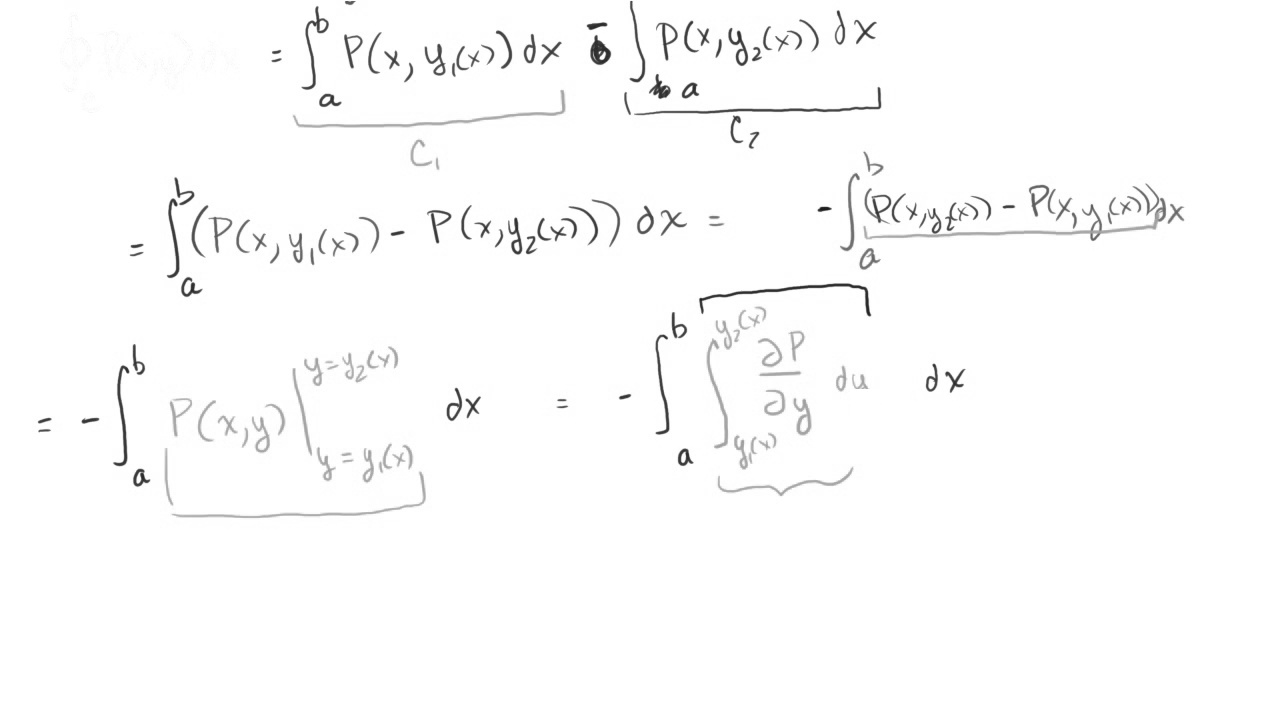 ∮_c P(x,y) dx = ∫_a^b P(x, y₁(x)) dx - ∫_a P(x, y₂(x)) dx
C₁ C₂
= ∫_a^b (P(x, y₁(x)) - P(x, y₂(x))) dx = - ∫_a^b (P(x, y₂(x)) - P(x, y₁(x))) dx
= - ∫_a^b P(x,y) |_{y = y₁(x)}^{y = y₂(x)} dx = - ∫_a^b ∫_{y₁(x)}^{y₂(x)} ∂P/∂y du dx